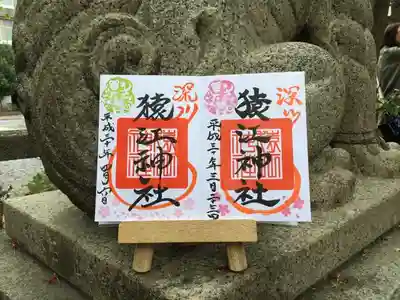 深川
猿江神社
平成三十年三月二十三日
深川
猿江神社
平成三十年四月六日